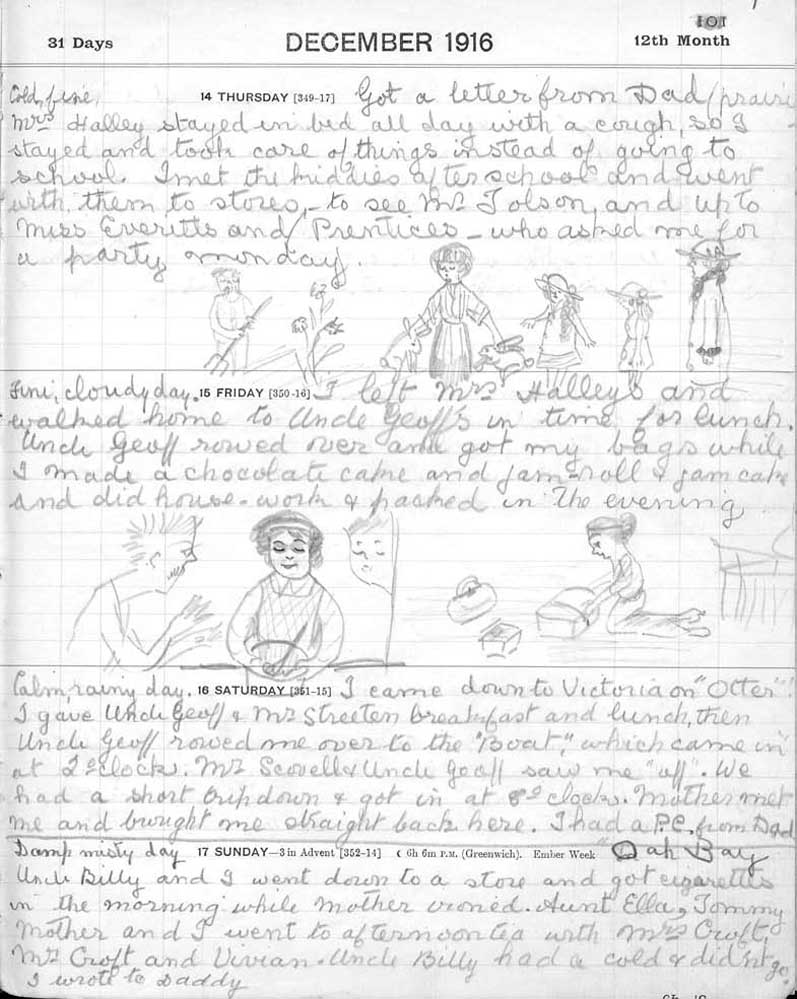 101
31 Days DECEMBER 1916 12th Month
Cold, fine. 14 THURSDAY [349-17] Got a letter from Dad (prairi
Mrs Halley stayed in bed all day with a cough, so I
stayed and took care of things instead of going to
school. I met the kiddies after school and went
with them to stores, - to see Mr. Tolson, and up to
Miss Everitts and Prentices - who asked me for
a party monday.
Fine, cloudy day. 15 FRIDAY [350-16] I left Mrs Halleys and
walked home to Uncle Geoff's in time for lunch.
Uncle Geoff rowed over and got my bags while
I made a chocolate cake and jam-roll & jam cake
and did house-work & packed in the evening
Calm, rainy day. 16 SATURDAY [351-15] I came down to Victoria on "Otter"!
I gave Uncle Geoff & Mr Streeten breakfast and lunch, then
Uncle Geoff rowed me over to the "Boat," which came in
at 2 o'clock. Mr Scovell & Uncle Geoff saw me "off". We
had a short trip down & got in at 8 o'clock. Mother met
me and brought me straight back here. I had a P.C. from Dad
Damp misty day 17 SUNDAY—3 in Advent [352-14] ☾ 6h 6m P.M. (Greenwich). Ember Week Oak Bay
Uncle Billy and I went down to a store and got cigarettes
in the morning while Mother ironed. Aunt Ella, Tommy
Mother and I went to afternoon tea with Mrs Croft,
Mr Croft and Vivian. Uncle Billy had a cold & didn't go.
I wrote to Daddy